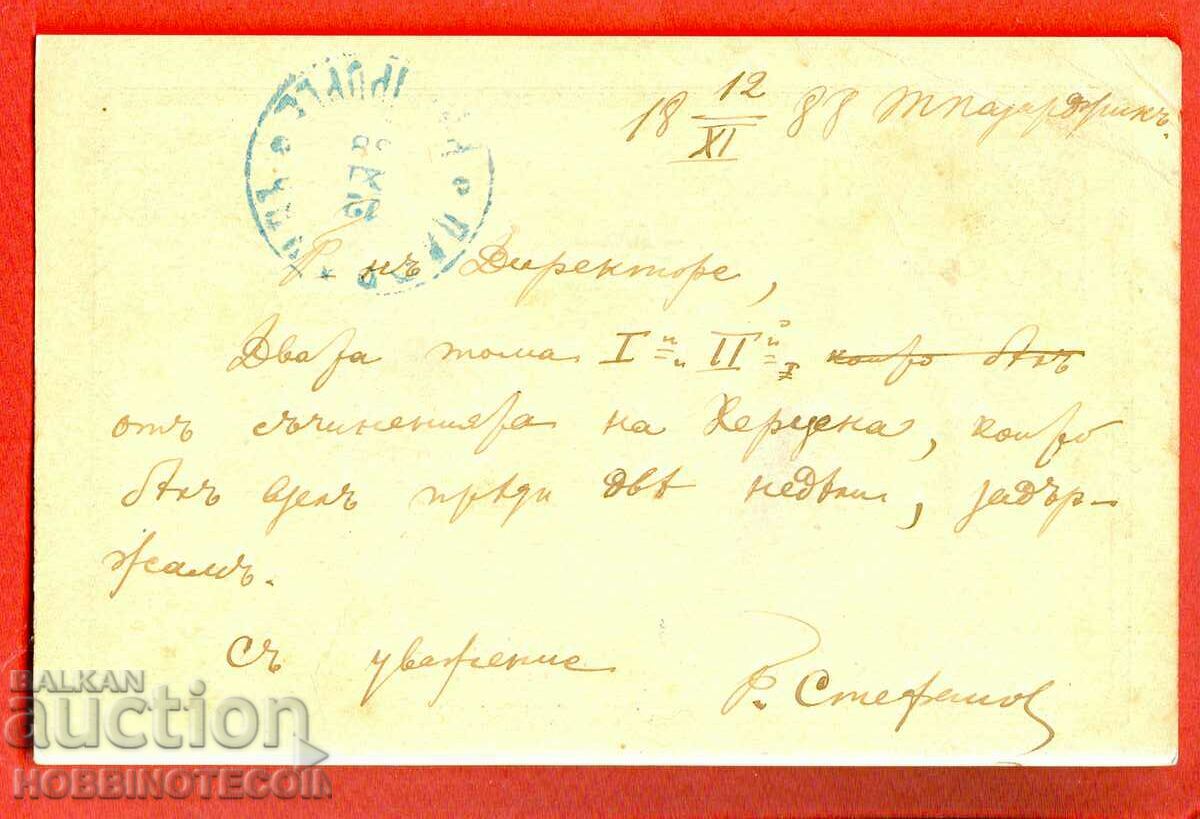 18 12/XI 88 Т Пазарджикъ.
Г нъ Директоре,
Двата тома I й II й които бяхъ
отъ съчиненията на Херцена, които
бяхъ прѣди двѣ недѣли, задър-
жамъ.
Съ уважение
Р. Стефанов
BALKAN
auction
HOBBINOTECOIN